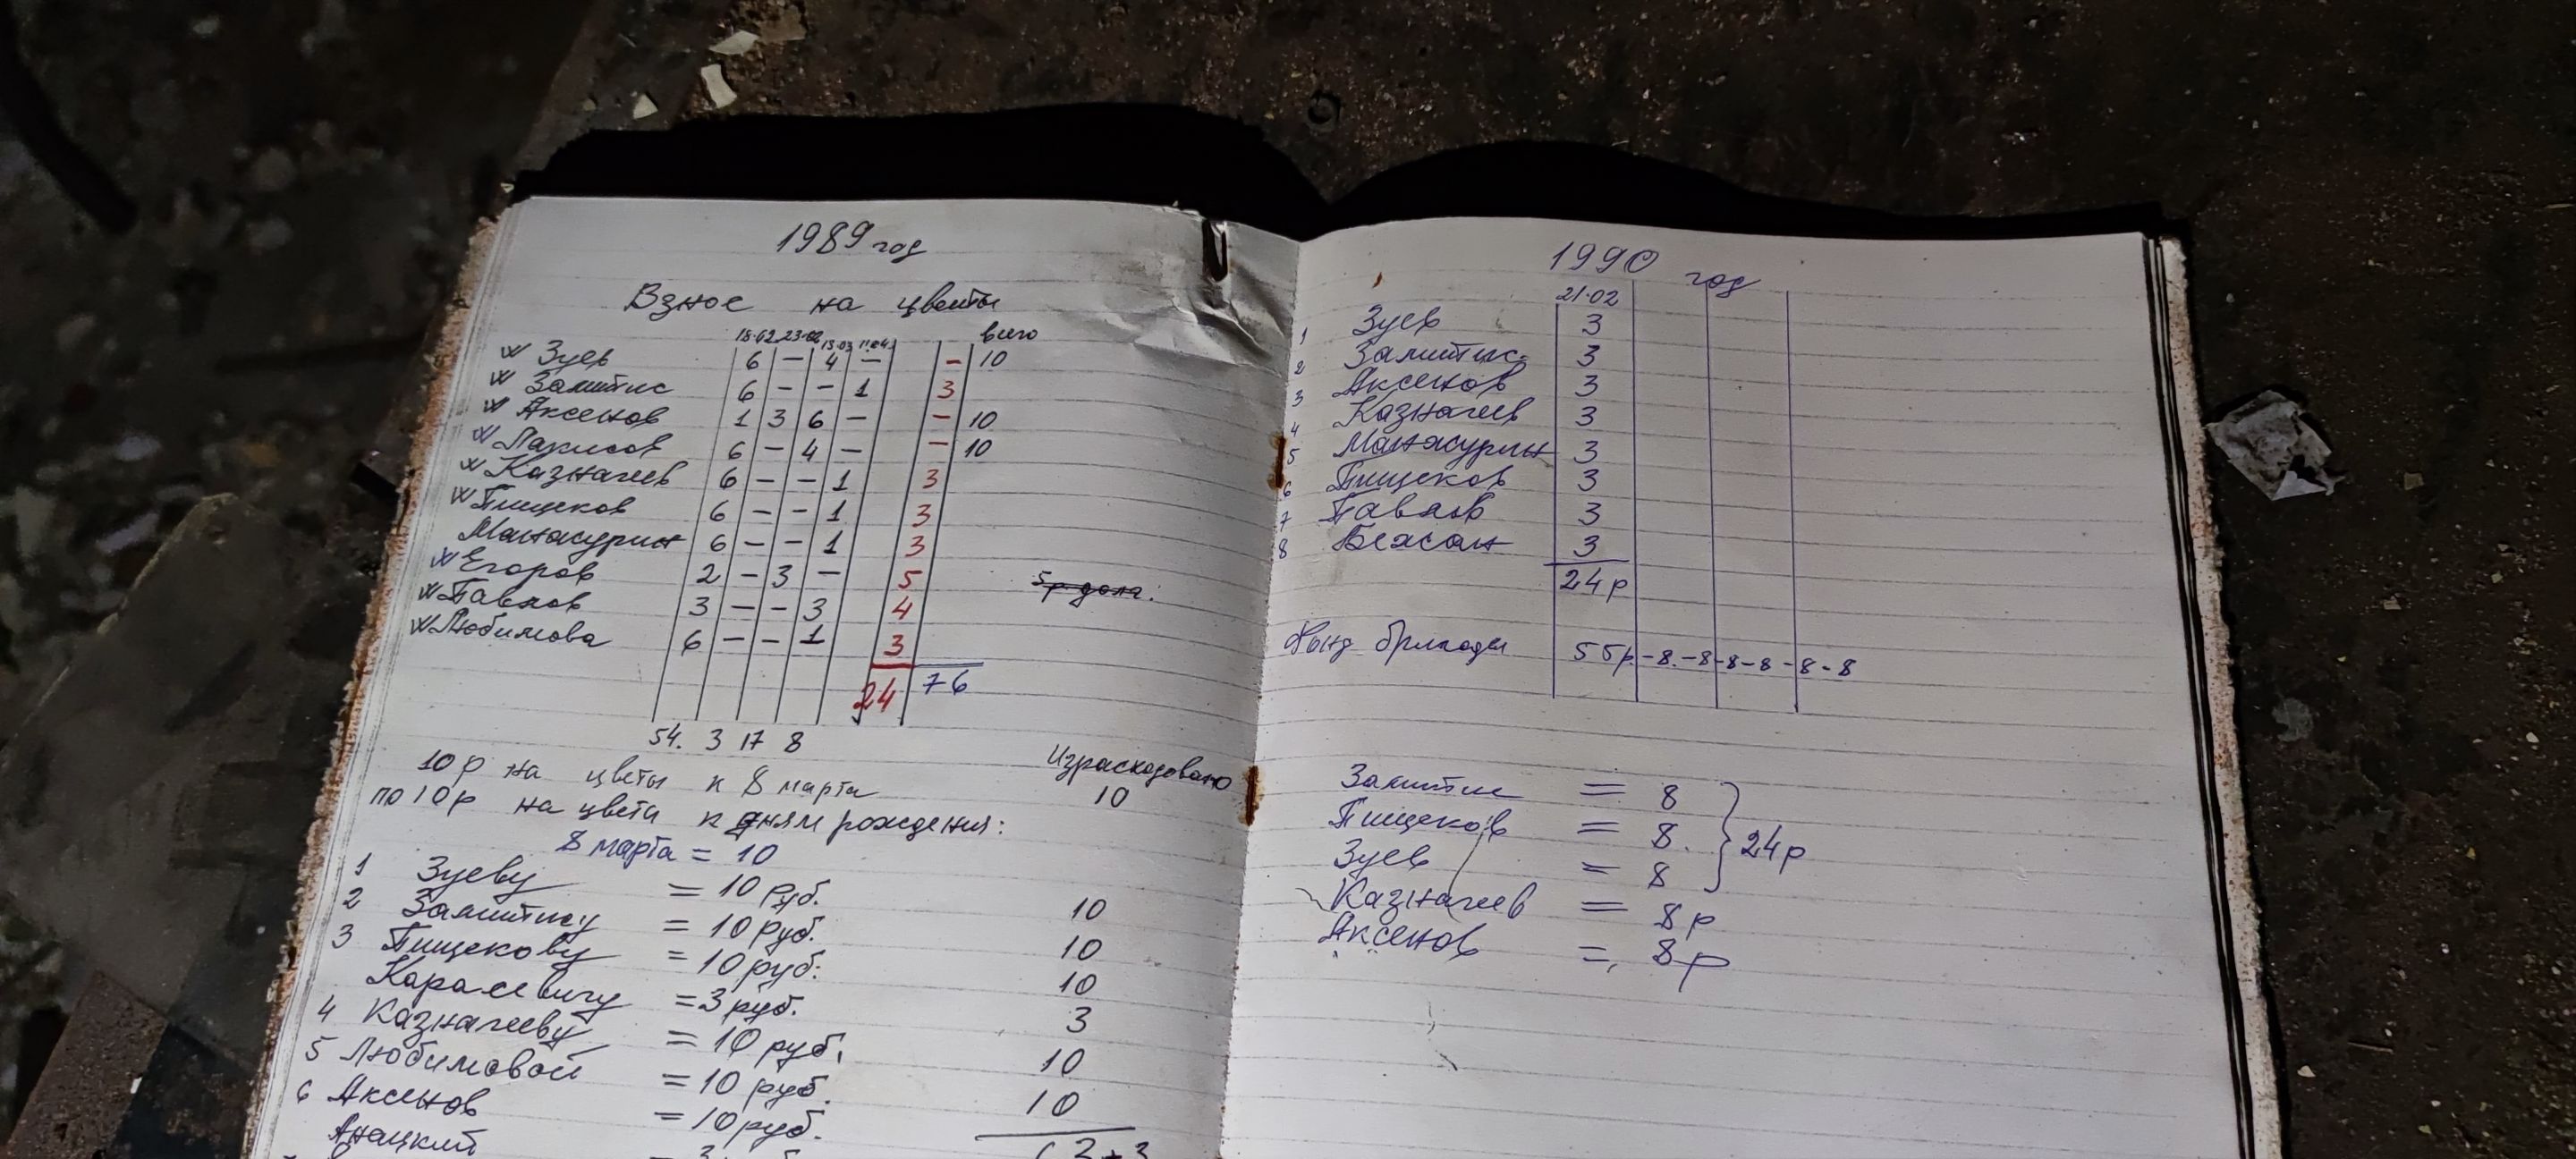 1989 год
Взнос на цветы
18.02 23.02 13.03 11.04 всего
Зуев 6 - 4 - - 10
Замитис 6 - - 1 3
Аксенов 1 3 6 - - 10
6 - 4 - - 10
Казначеев 6 - - 1 3
Пищеков 6 - - 1 3
Манжурин 6 - - 1 3
Егоров 2 - 3 - 5 5р долг.
Павлов 3 - - 3 4
Любимова 6 - - 1 3
24 76
54. 3 17 8
10 р на цветы к 8 марта Израсходовано
по 10 р на цветы к дням рождения: 10
8 марта = 10
1 Зуеву = 10 руб. 10
2 Замитису = 10 руб. 10
3 Пищекову = 10 руб. 10
Каралевичу = 3 руб. 3
4 Казначееву = 10 руб. 10
5 Любимовой = 10 руб. 10
6 Аксенов = 10 руб.
1990 год
21.02
1 Зуев 3
2 Замитис 3
3 Аксенов 3
4 Казначеев 3
5 Манжурин 3
6 Пищеков 3
7 Павлов 3
8 3
24 р
Фонд бригады 55р. -8. -8 -8 -8 -8 -8
Замитис = 8
Пищеков = 8.
Зуев = 8
24 р
Казначеев = 8 р
Аксенов = 8 р